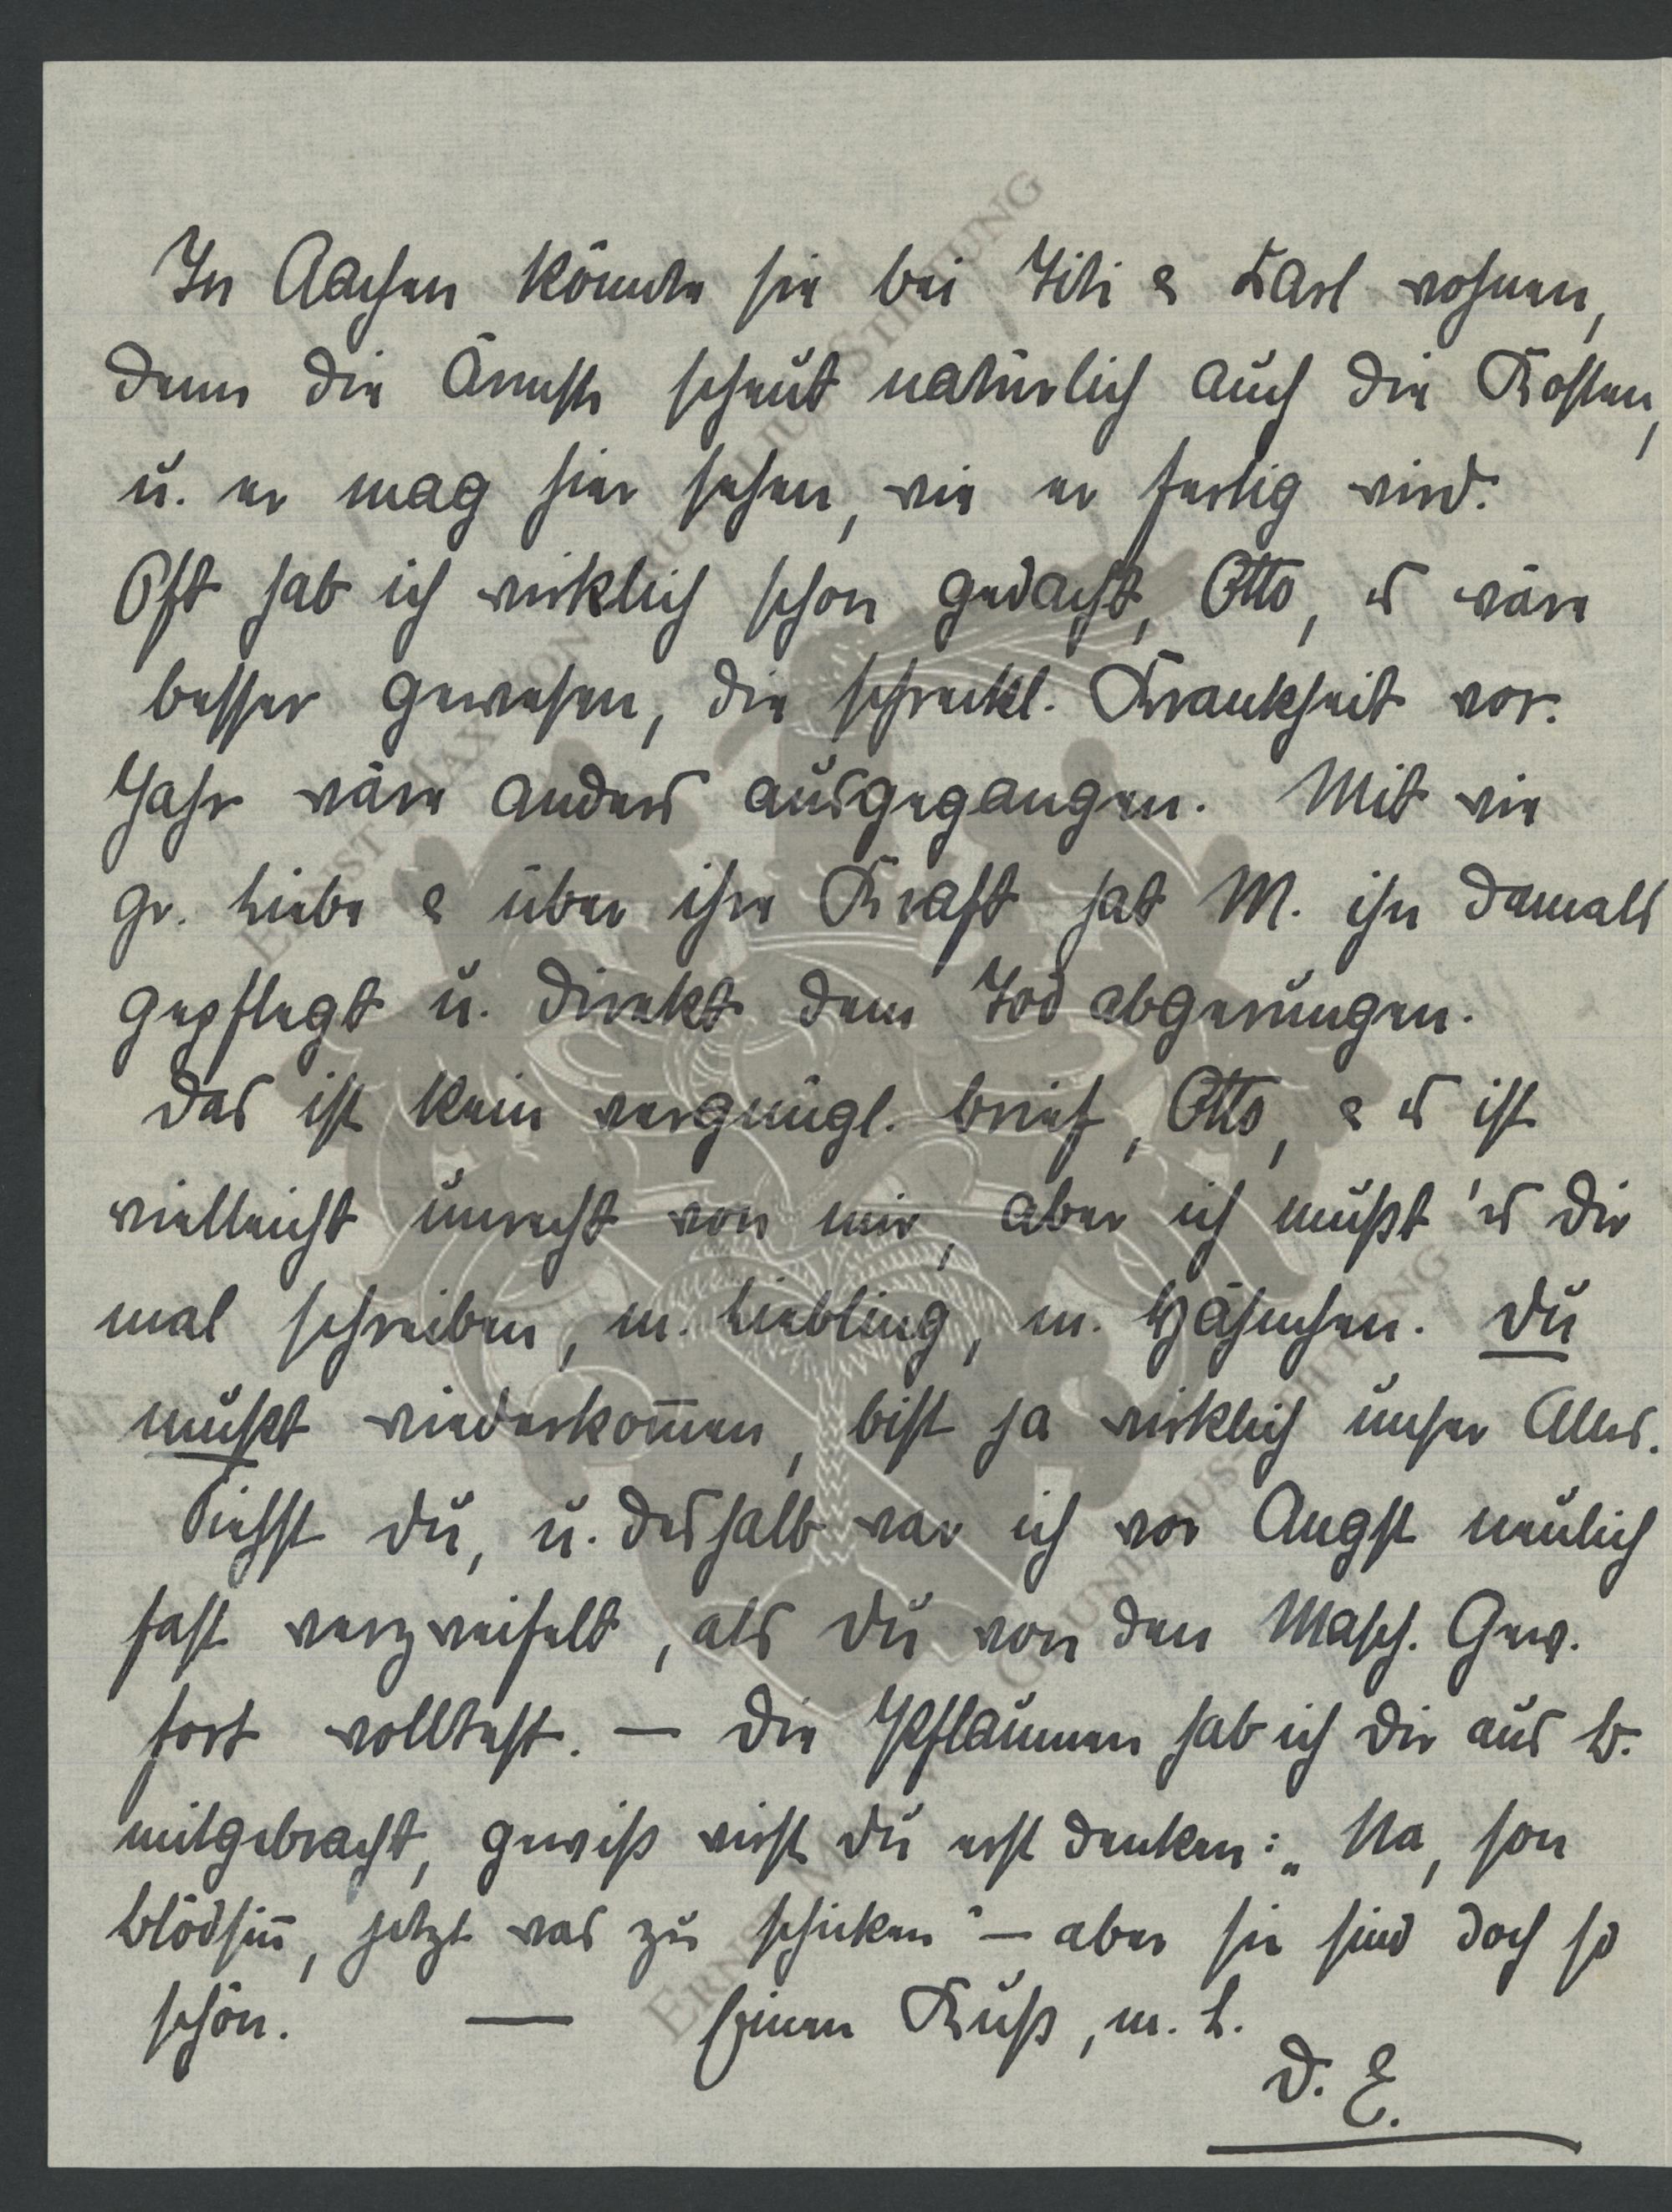 In Aachen könnte sie bei Titi & Karl wohnen,
denn die Ärmste scheut natürlich auch die Kosten,
u. er mag hier sehen, wie er fertig wird.
Oft hab ich wirklich schon gedacht, Otto, es wäre
besser gewesen, die schreckl. Krankheit vor.
Jahr wäre anders ausgegangen. Mit wie
gr. Liebe & über ihre Kraft hat M. ihn damals
gepflegt u. direkt dem Tod abgerungen.
Das ist kein vergnügl. Brief, Otto, & es ist
vielleicht unrecht von mir, aber ich mußt 'es Dir
mal schreiben, m. Liebling, m. Hähnchen. Du
mußt wiederkom̄en, bist ja wirklich unser Alles.
Siehst Du, u. deshalb war ich vor Angst neulich
fast verzweifelt, als Du von den Masch. Gew.
fort wolltest. — Die Pflaumen hab ich Dir aus B.
mitgebracht, gewiß wirst Du erst denken: „Na, son
Blödsin̄, jetzt was zu schicken" — aber sie sind doch so
schön. — Einen Kuß, m. L.
D. E.
ERNST MAX VON GRUNELIUS-STIFTUNG
ERNST MAX VON GRUNELIUS-STIFTUNG